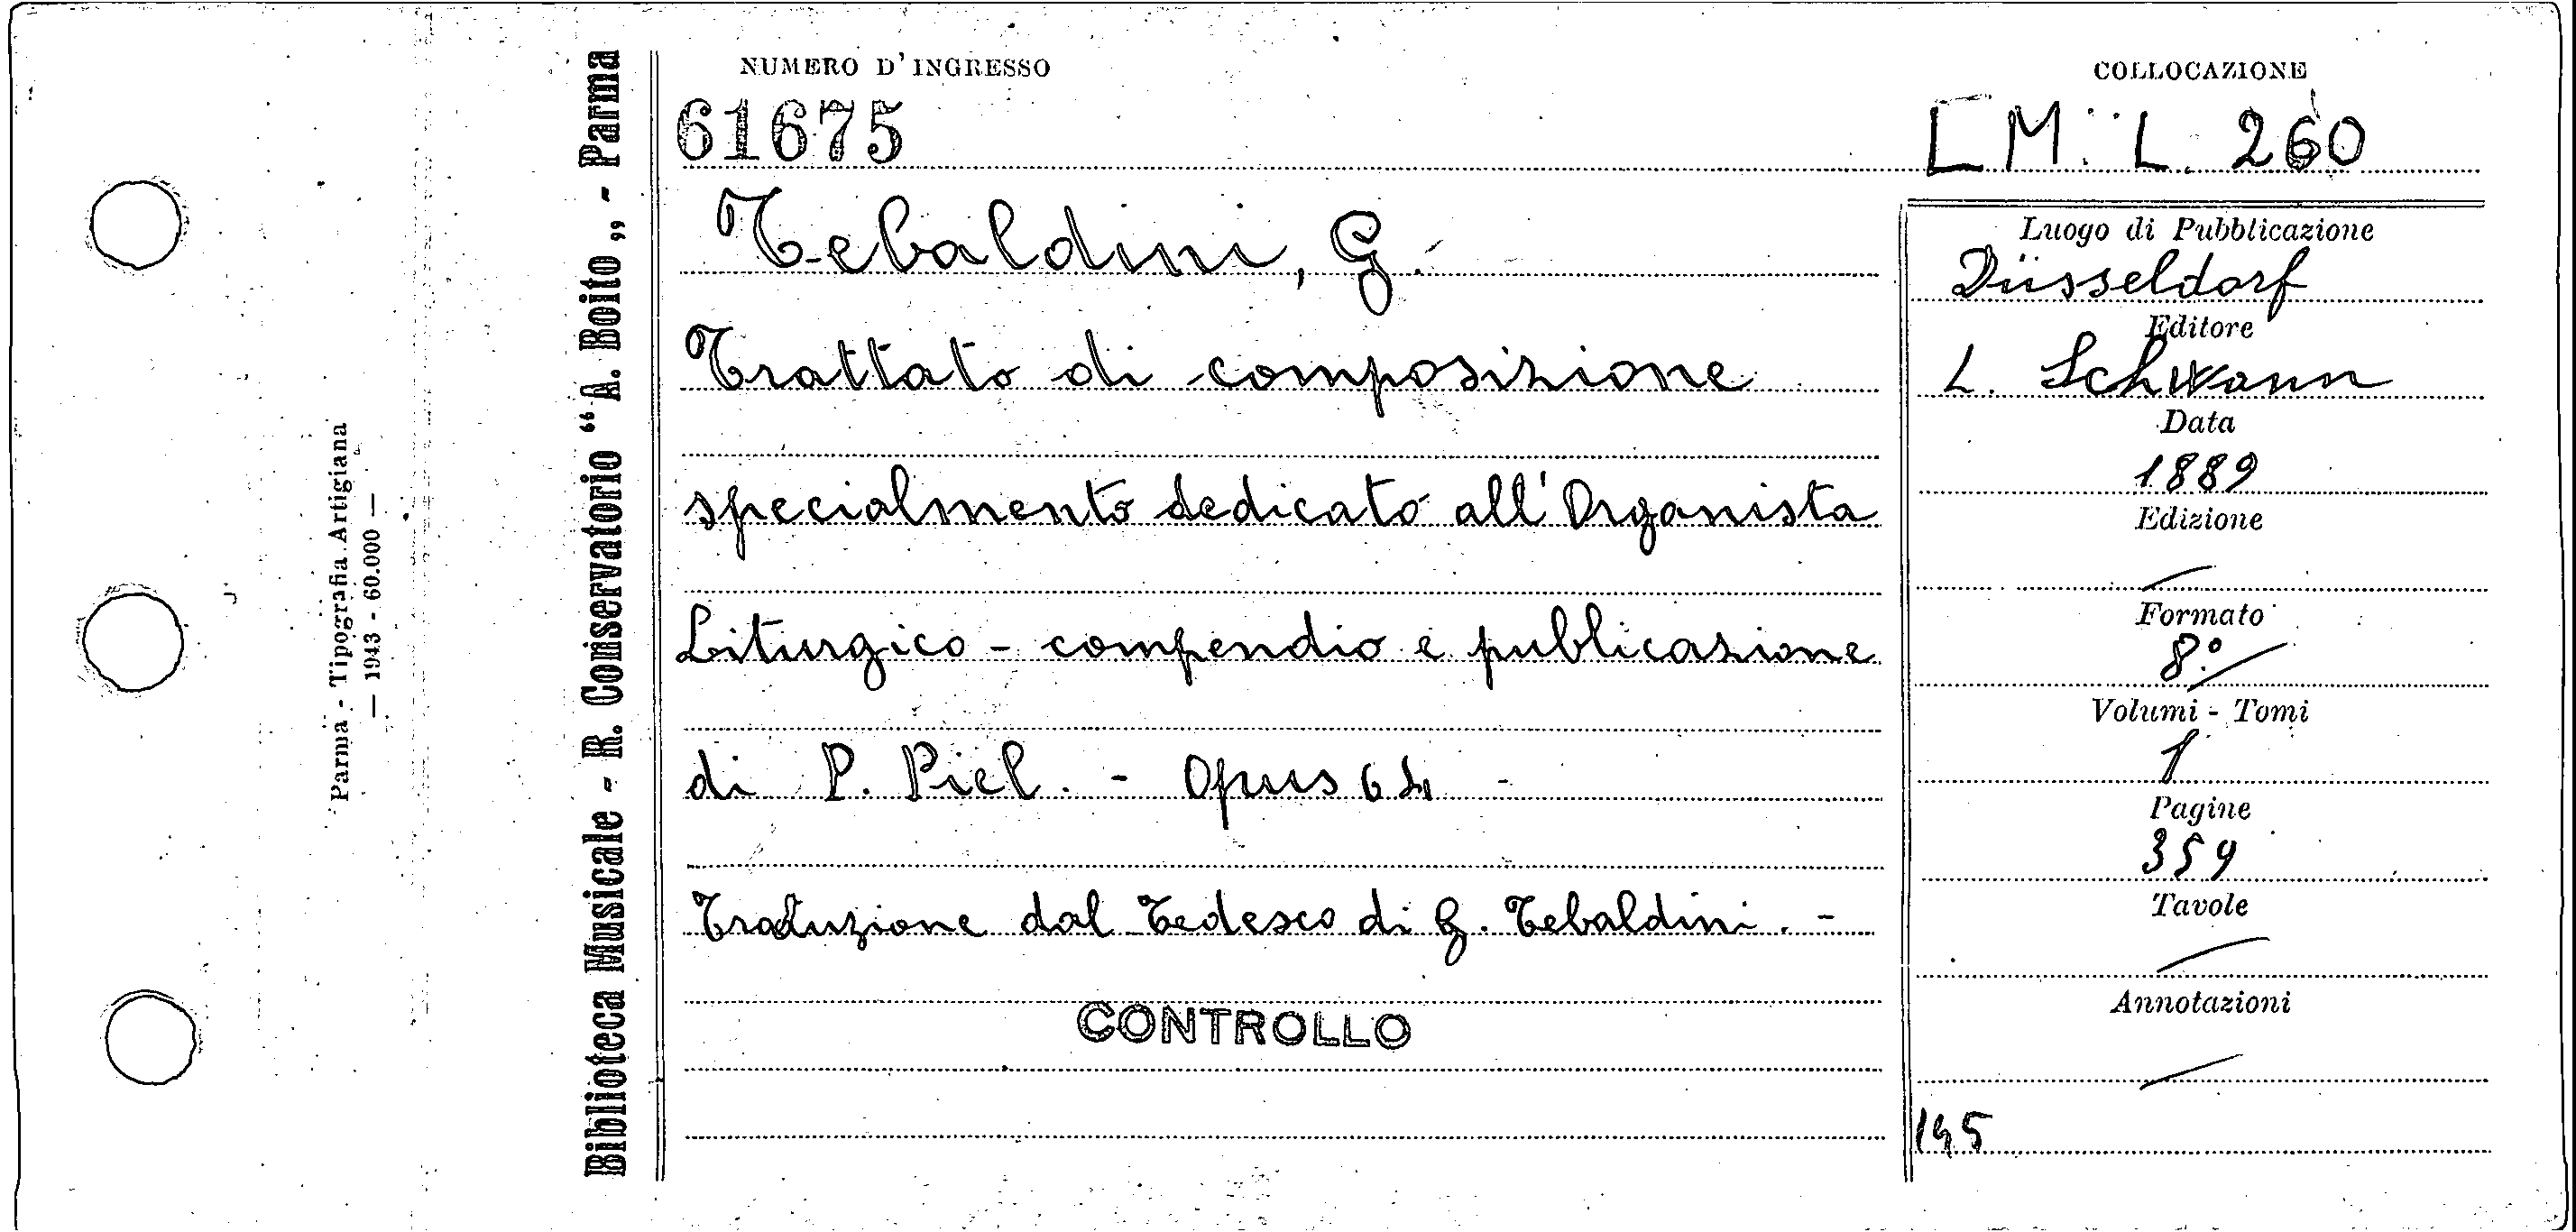 Parma - Tipografia Artigiana
— 1943 - 60.000 —
Biblioteca Musicale - R. Conservatorio "A. Boito„ - Parma
NUMERO D'INGRESSO
61675
COLLOCAZIONE
M. L. 260
Tebaldini, G.
Trattato di composizione
specialmento dedicato all'Organista
Liturgico - compendio e publicazione
di P. Piel. - Opus 64 -
Traduzione dal Tedesco di G. Tebaldini. -
CONTROLLO
Luogo di Pubblicazione
Düsseldorf
Editore
L. Schwann
Data
1889
Edizione
Formato
8°
Volumi - Tomi
1
Pagine
359
Tavole
Annotazioni
145